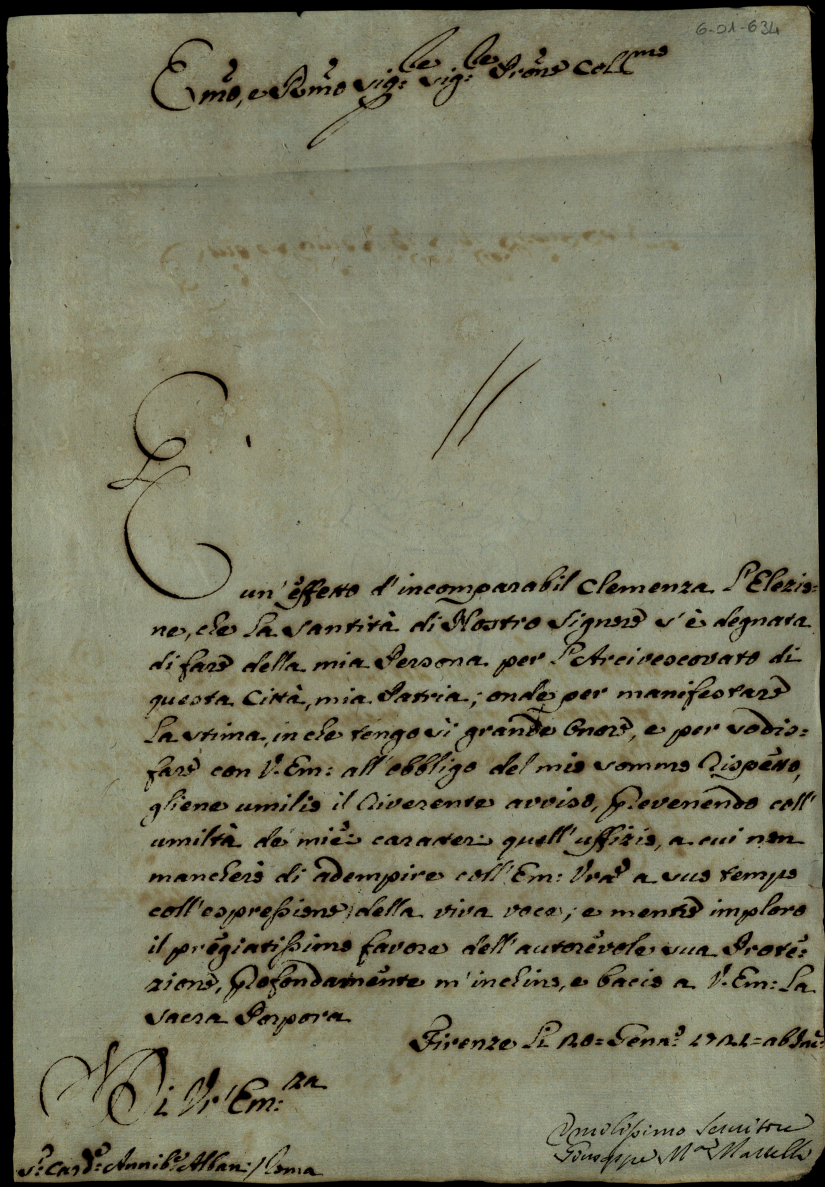 6-01-634
Emo, e Rmo Sig:re Sig:re Prone Coll.mo
E'
un'effetto d'incomparabil Clemenza l'Elezio=
ne, che la Santità di Nostro Signore s'è degnata
di fare della mia Persona per l'Arcivescovato di
questa Città, mia Patria; onde per manifestare
la stima, in che tengo sì grande Onore, e per sodis=
fare con V. Em: all'obbligo del mio sommo Rispetto,
gliene umilio il Riverente avviso, Prevenendo coll'
umiltà de' miei caratteri quell'uffizio, a cui non
mancherò di adempire coll'Em: Vra a suo tempo
coll'espressione della viva voce; e mentre imploro
il pregiatissimo favore dell'autorevole sua Prote=
zione, Profondamente m'inchino, e bacio a V. Em: la
Sacra Porpora
Firenze li 20= Genn.o 1721= ab Inc.
Di Vr'Em:za
S.r Card.e Annib.e Albani / Roma
Umilissimo Servitore
Giuseppe M.a Martelli